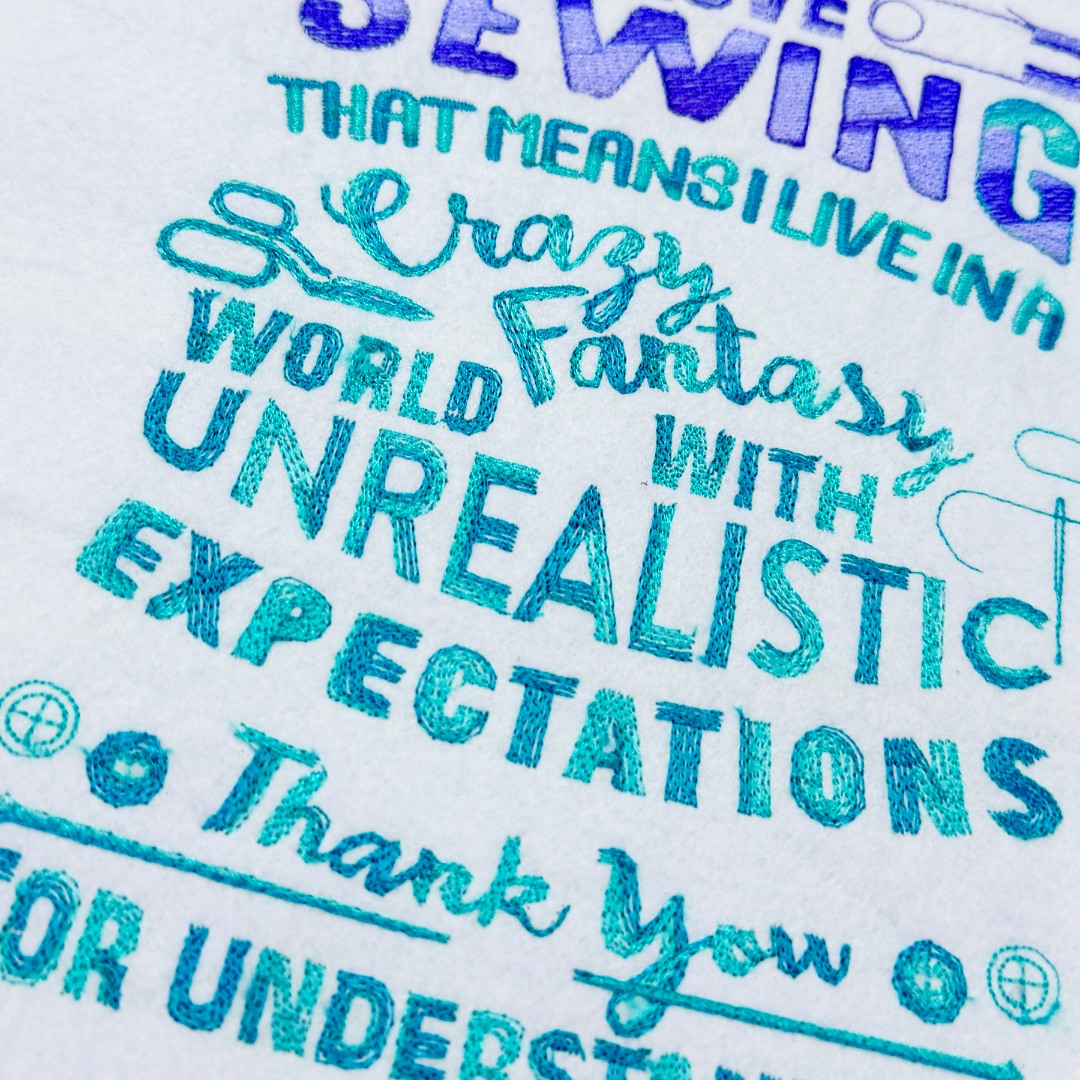 SEWING
THAT MEANS I LIVE IN A
Crazy
Fantasy
WORLD
WITH
UNREALISTIC
EXPECTATIONS
Thank You
FOR